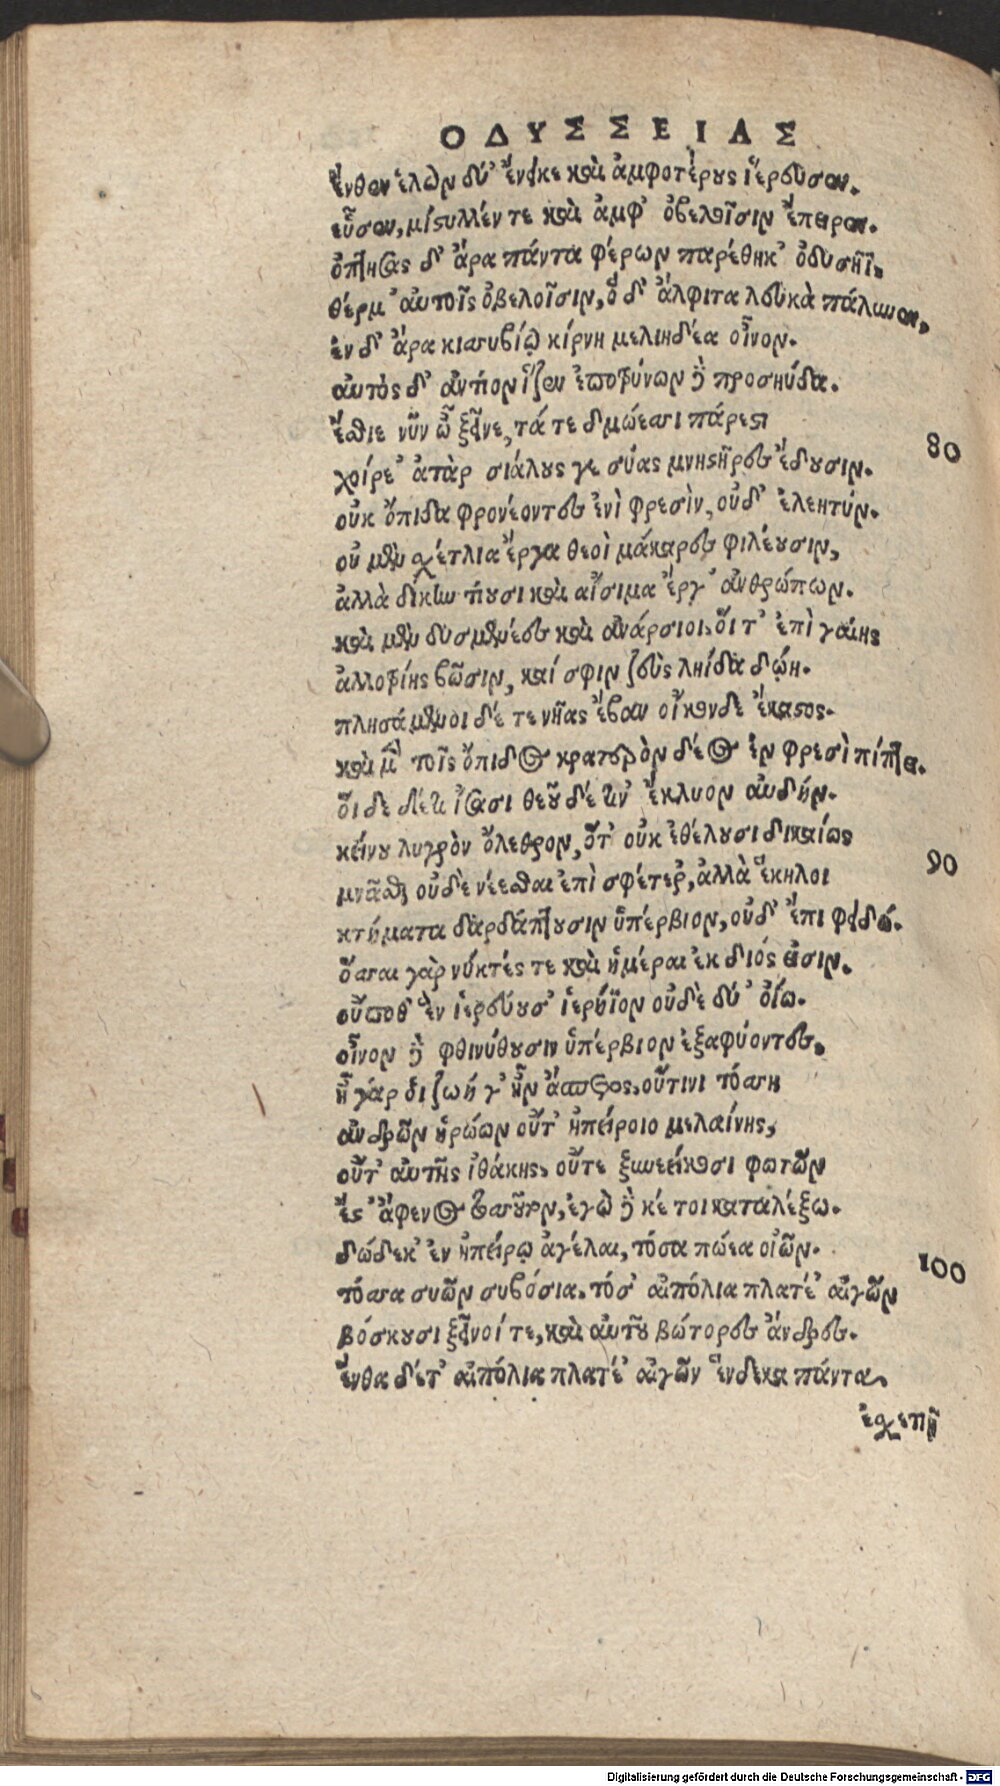 ΟΔΥΣΣΕΙΑΣ
ἔνθεν ἑλὼν δύ' ἔνεικε καὶ ἀμφοτέρους ἱέρευσεν.
εὗσεν, μίστυλλέν τε καὶ ἀμφ' ὀβελοῖσιν ἔπειρεν.
ὀπτήσας δ' ἄρα πάντα φέρων παρέθηκ' ὀδυσῆϊ,
θέρμ' αὐτοῖς ὀβελοῖσιν, ὅ δ' ἄλφιτα λευκὰ πάλυνεν,
ἐν δ' ἄρα κισσυβίῳ κίρνη μελιηδέα οἶνον.
αὐτὸς δ' ἀντίον ἷζεν ἐποτρύνων δὲ προσηύδα.
ἔσθιε νῦν ὦ ξεῖνε, τά τε δμώεσσι πάρεστι
80
χοίρε' ἀτὰρ σιάλους γε σύας μνηστῆρες ἔδουσιν.
οὐκ ὄπιδα φρονέοντες ἐνὶ φρεσὶν, οὐδ' ἐλεητύν.
οὐ μὲν σχέτλια ἔργα θεοὶ μάκαρες φιλέουσιν,
ἀλλὰ δίκην τίουσι καὶ αἴσιμα ἔργ' ἀνθρώπων.
καὶ μὲν δυσμενέες καὶ ἀνάρσιοι, οἵ τ' ἐπὶ γαίης
ἀλλοτρίης βῶσιν, καί σφιν ζεὺς ληίδα δώῃ.
πλησάμενοι δέ τε νῆας ἔβαν οἶκονδε ἕκαστος.
καὶ μὲν τοῖς ὄπιδος κρατερὸν δέος ἐν φρεσὶ πίπτει.
οἵ δε δέ τι ἴσασι θεοῦ δέ τιν' ἔκλυον αὐδήν.
κείνου λυγρὸν ὄλεθρον, ὅτ' οὐκ ἐθέλουσι δικαίως
90
μνᾶσθαι οὐδὲ νέεσθαι ἐπὶ σφέτερ', ἀλλὰ ἕκηλοι
κτήματα δαρδάπτουσιν ὑπέρβιον, οὐδ' ἔπι φειδώ.
ὅσσαι γὰρ νύκτές τε καὶ ἡμέραι ἐκ διός εἰσιν,
οὔποθ' ἓν ἱερεύουσ' ἱερήϊον οὐδὲ δύ' οἴω.
οἶνον δὲ φθινύθουσιν ὑπέρβιον ἐξαφύοντες,
ἦ γάρ οἱ ζωή γ' ἦν ἄσπετος, οὔτινι τόσση
ἀνδρῶν ἡρώων οὔτ' ἠπείροιο μελαίνης,
οὔτ' αὐτῆς ἰθάκης, οὔτε ξυνεείκοσι φωτῶν
ἔστ' ἄφενος τοσσοῦτον, ἐγὼ δὲ κέ τοι καταλέξω.
δώδεκ' ἐν ἠπείρῳ ἀγέλαι, τόσα πώεα οἰῶν.
100
τόσσα συῶν συβόσια, τόσ' αἰπόλια πλατέ' αἰγῶν
βόσκουσι ξεῖνοί τε, καὶ αὐτοῦ βώτορες ἄνδρες.
ἔνθα δέ τ' αἰπόλια πλατέ' αἰγῶν ἕνδεκα πάντα,
ἐσχατιῇ
Digitalisierung gefördert durch die Deutsche Forschungsgemeinschaft - DFG